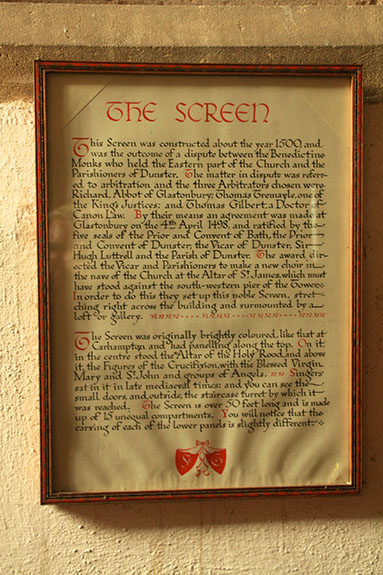 THE SCREEN
This Screen was constructed about the year 1500, and
was the outcome of a dispute between the Benedictine
Monks who held the Eastern part of the Church and the
Parishioners of Dunster. The matter in dispute was refer-
red to arbitration and the three Arbitrators chosen were
Richard, Abbot of Glastonbury; Thomas Tremayle, one of
the King's Justices; and Thomas Gilbert, a Doctor of
Canon Law. By their means an agreement was made at
Glastonbury on the 4th April 1498, and ratified by the
five seals of the Prior and Convent of Bath, the Prior
and Convent of Dunster, the Vicar of Dunster, Sir
Hugh Luttrell and the Parish of Dunster. The award dir-
ected the Vicar and Parishioners to make a new choir in
the nave of the Church at the Altar of St. James, which must
have stood against the south-western pier of the Tower.
In order to do this they set up this noble Screen, stret-
ching right across the building and surmounted by a
loft or gallery.
The Screen was originally brightly coloured, like that at
Carhampton and had panelling along the top. On it
in the centre stood the Altar of the Holy Rood, and above
it, the Figures of the Crucifixion, with the Blessed Virgin
Mary and St. John and groups of Angels. Singers
sat in it in late mediaeval times: and you can see the
small doors, and, outside, the staircase turret by which it
was reached. The Screen is over 50 feet long and is made
up of 15 unequal compartments. You will notice that the
carving of each of the lower panels is slightly different.